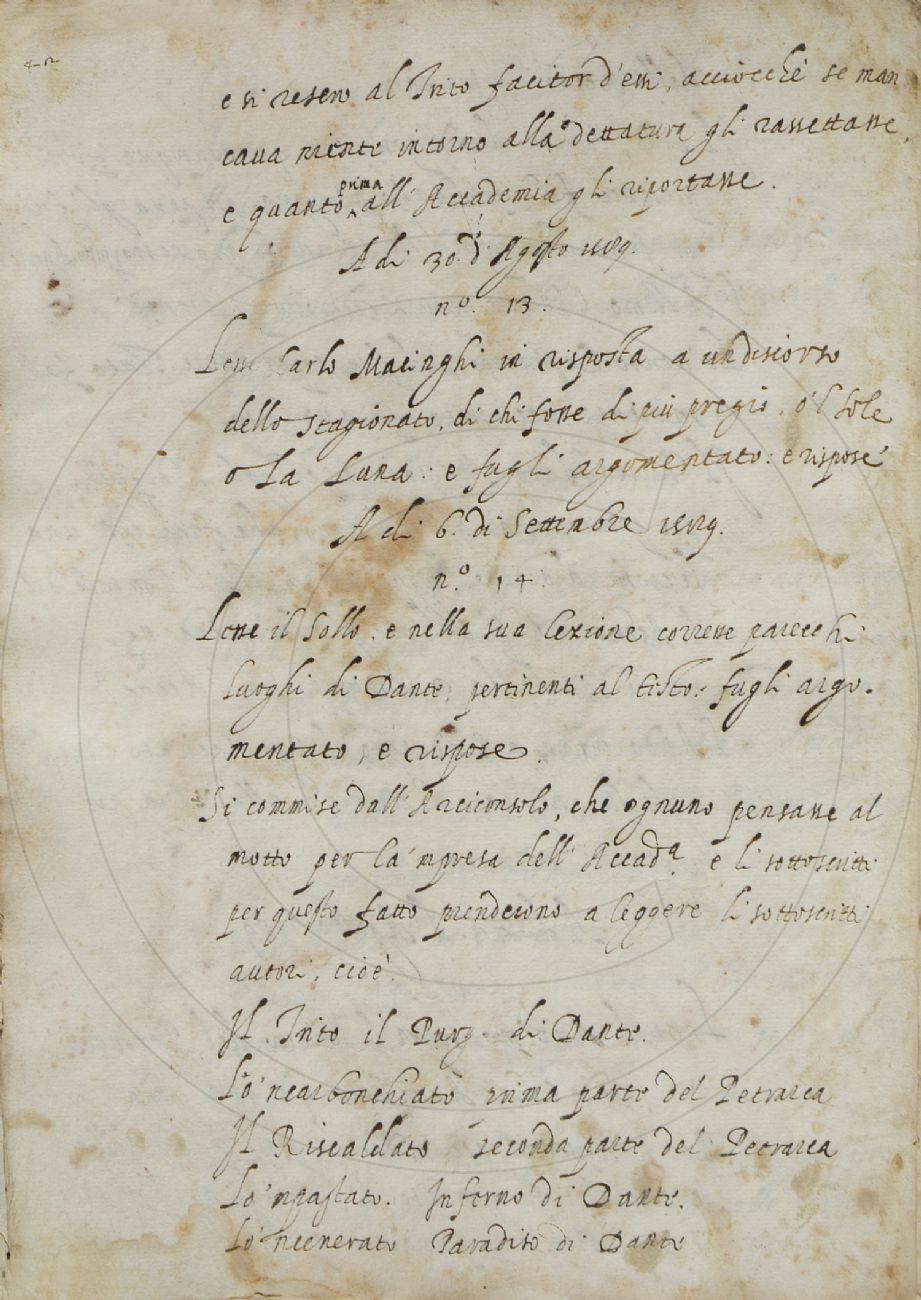 4-12
e si resero al Trito facitor d'essi, acciocchè se man
cava niente intorno alla dettatura gli rassettasse,
e quanto prima all'Accademia gli riportasse.
A di 30. d'Agosto 1589.
n.º 13.
Lesse Carlo Macinghi in risposta a un discorso
dello Stagionato, di chi fosse di più pregio, o 'l Sole
o la Luna: e fugli argomentato: e rispose
A di 6. di Settembre 1589.
n.º 14.
Lesse il Sollo, e nella sua lezione corresse parecchi
luoghi di Dante, pertinenti al testo: fugli argo-
mentato, e rispose.
Si commise dall'Arciconsolo, che ognuno pensasse al
motto per la 'mpresa dell'Accad.ª e li sottoscritti
per questo fatto prenderono a leggere li sottoscritti
autori, cioè.
Il Trito il Purg. di Dante.
Lo 'ncarbonchiato prima parte del Petrarca
Il Riscaldato seconda parte del Petrarca
Lo 'mpastato. Inferno di Dante.
Lo 'ncenerato Paradiso di Dante